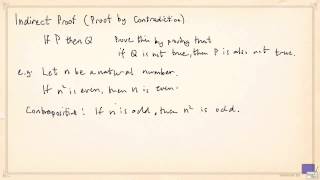 Indirect Proof (Proof by Contradiction)
If P then Q Prove this by proving that
if Q is not true, then P is also not true.
e.g. Let n be a natural number.
If n² is even, then n is even.
Contrapositive: If n is odd, then n² is odd.